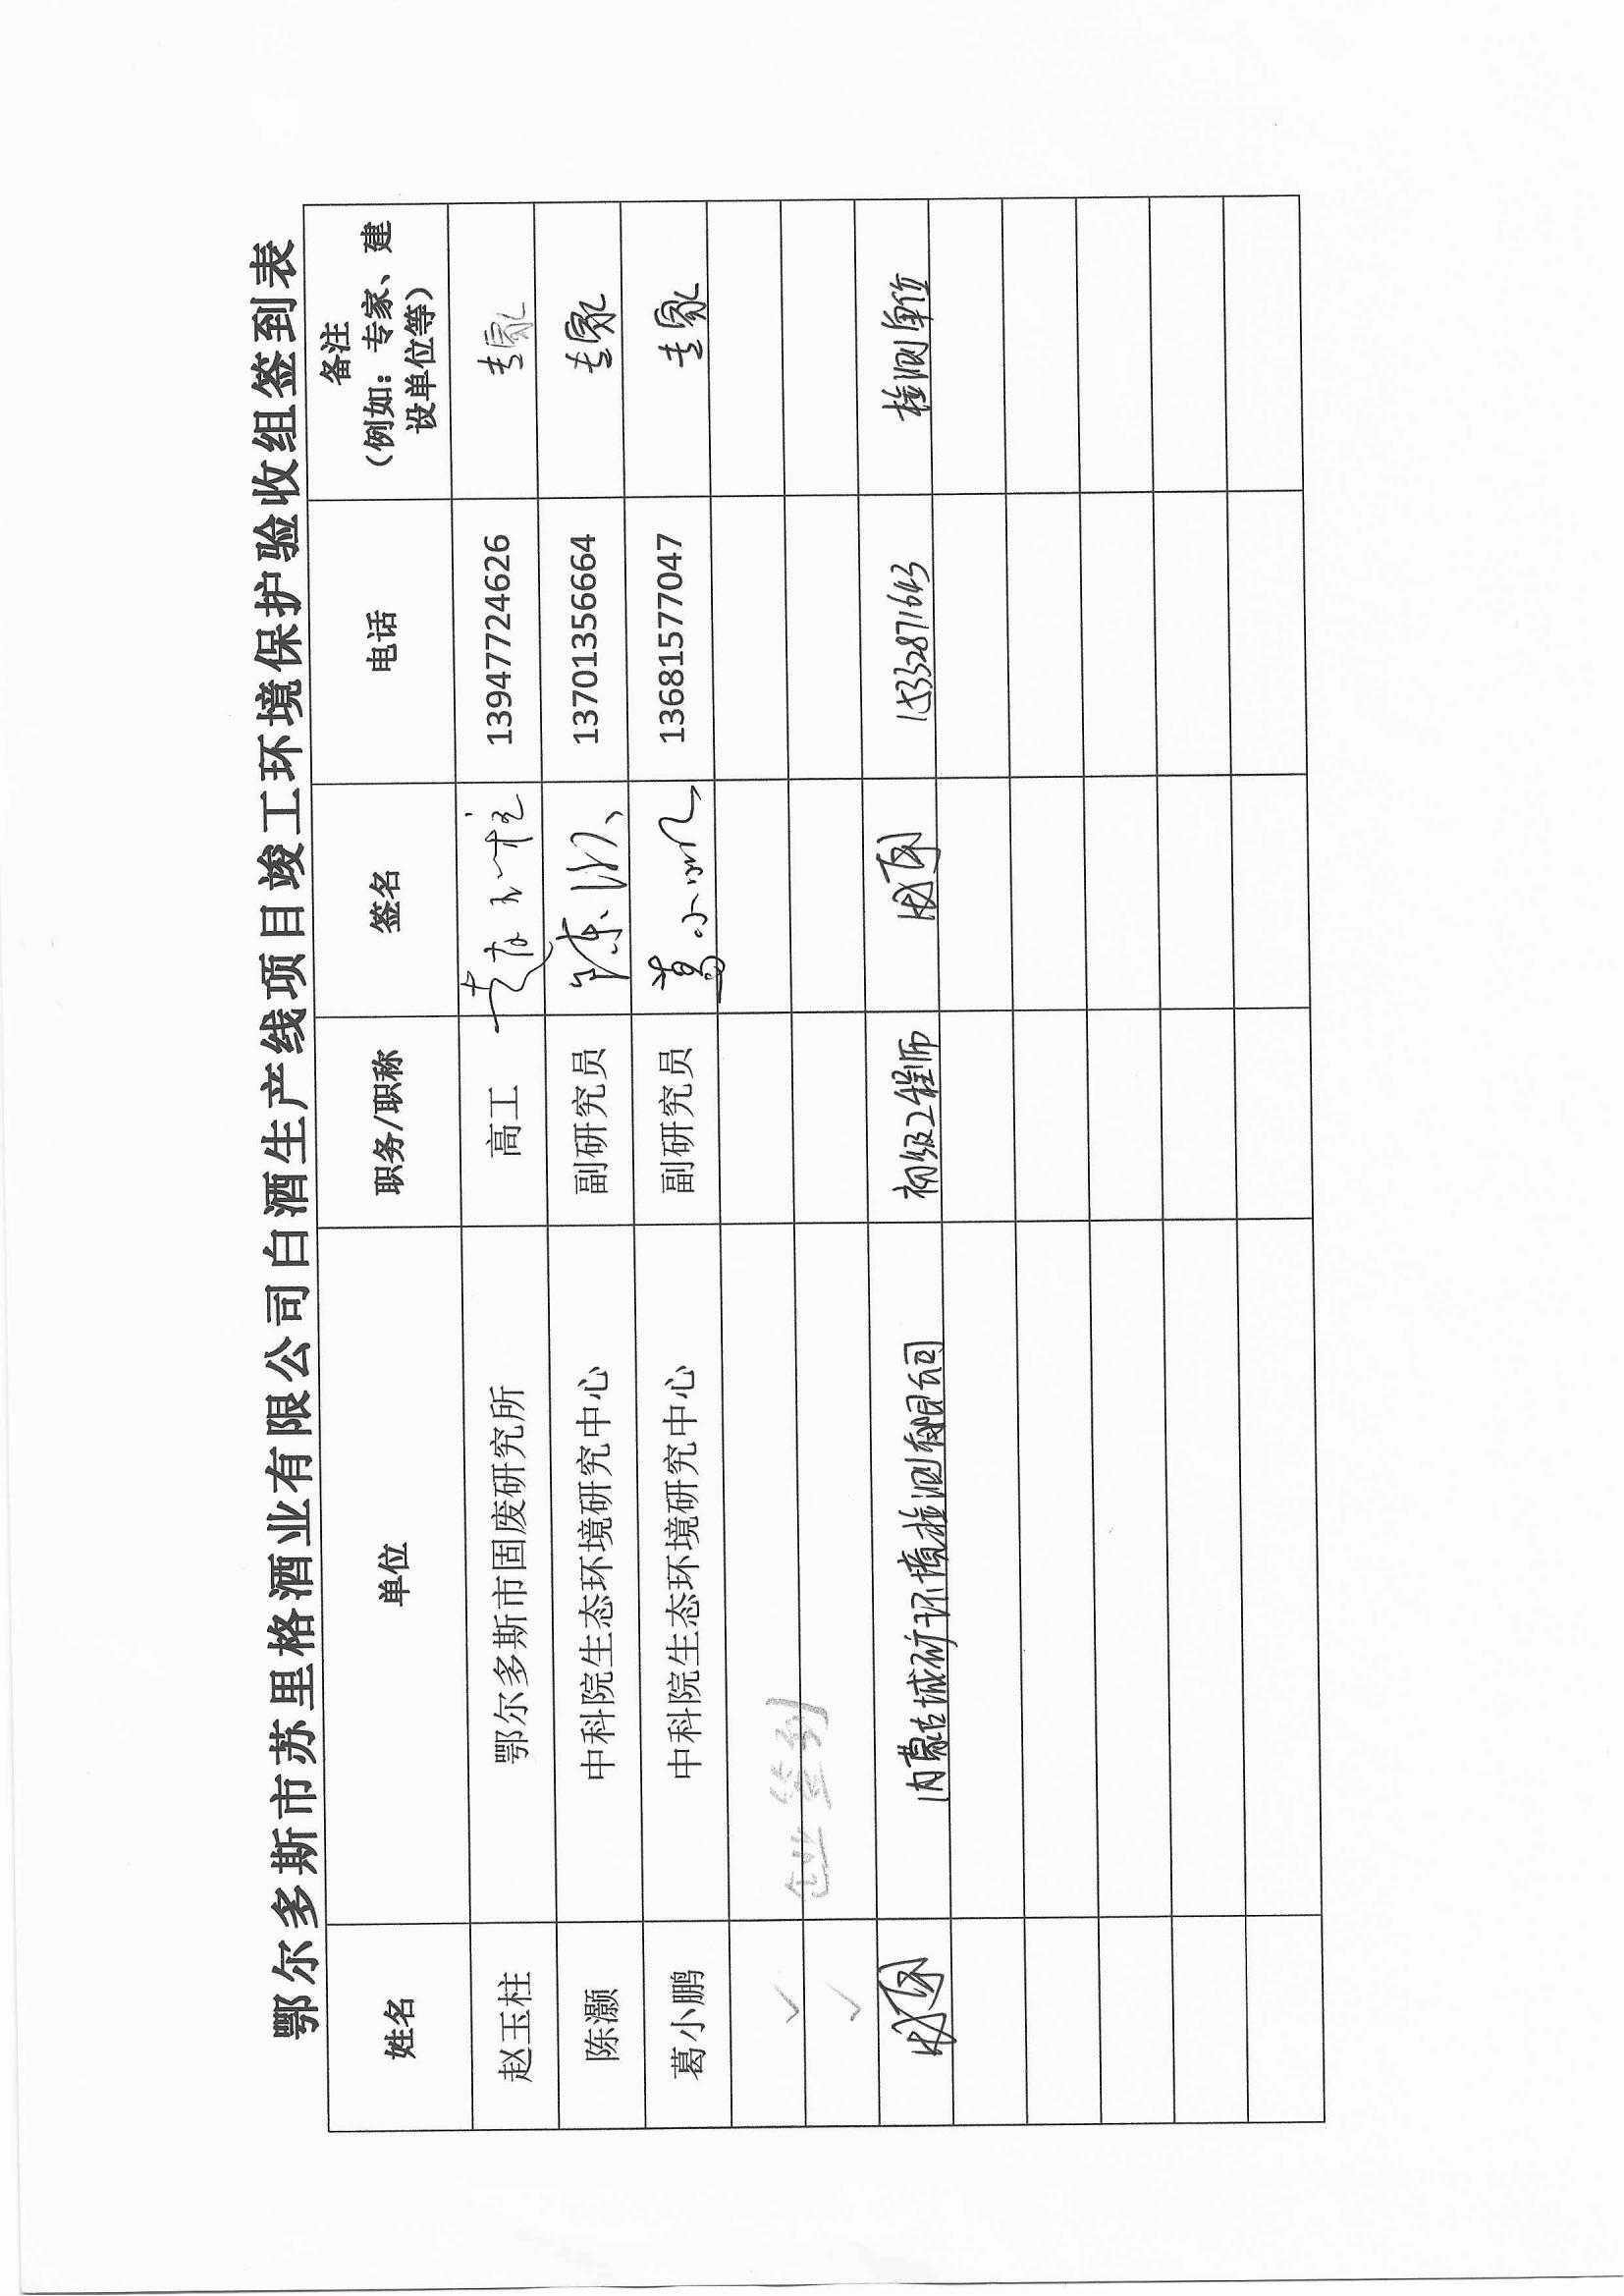 鄂尔多斯市苏里格酒业有限公司白酒生产线项目竣工环境保护验收组签到表
姓名 单位 职务/职称 签名 电话 备注
(例如：专家、建
设单位等)
赵玉柱 鄂尔多斯市固废研究所 高工 赵玉柱 13947724626 专家
陈灏 中科院生态环境研究中心 副研究员 陈灏 13701356664 专家
葛小鹏 中科院生态环境研究中心 副研究员 葛小鹏 13681577047 专家
企业签到
内蒙古城矿环境检测有限公司 初级工程师 15332871643 检测单位